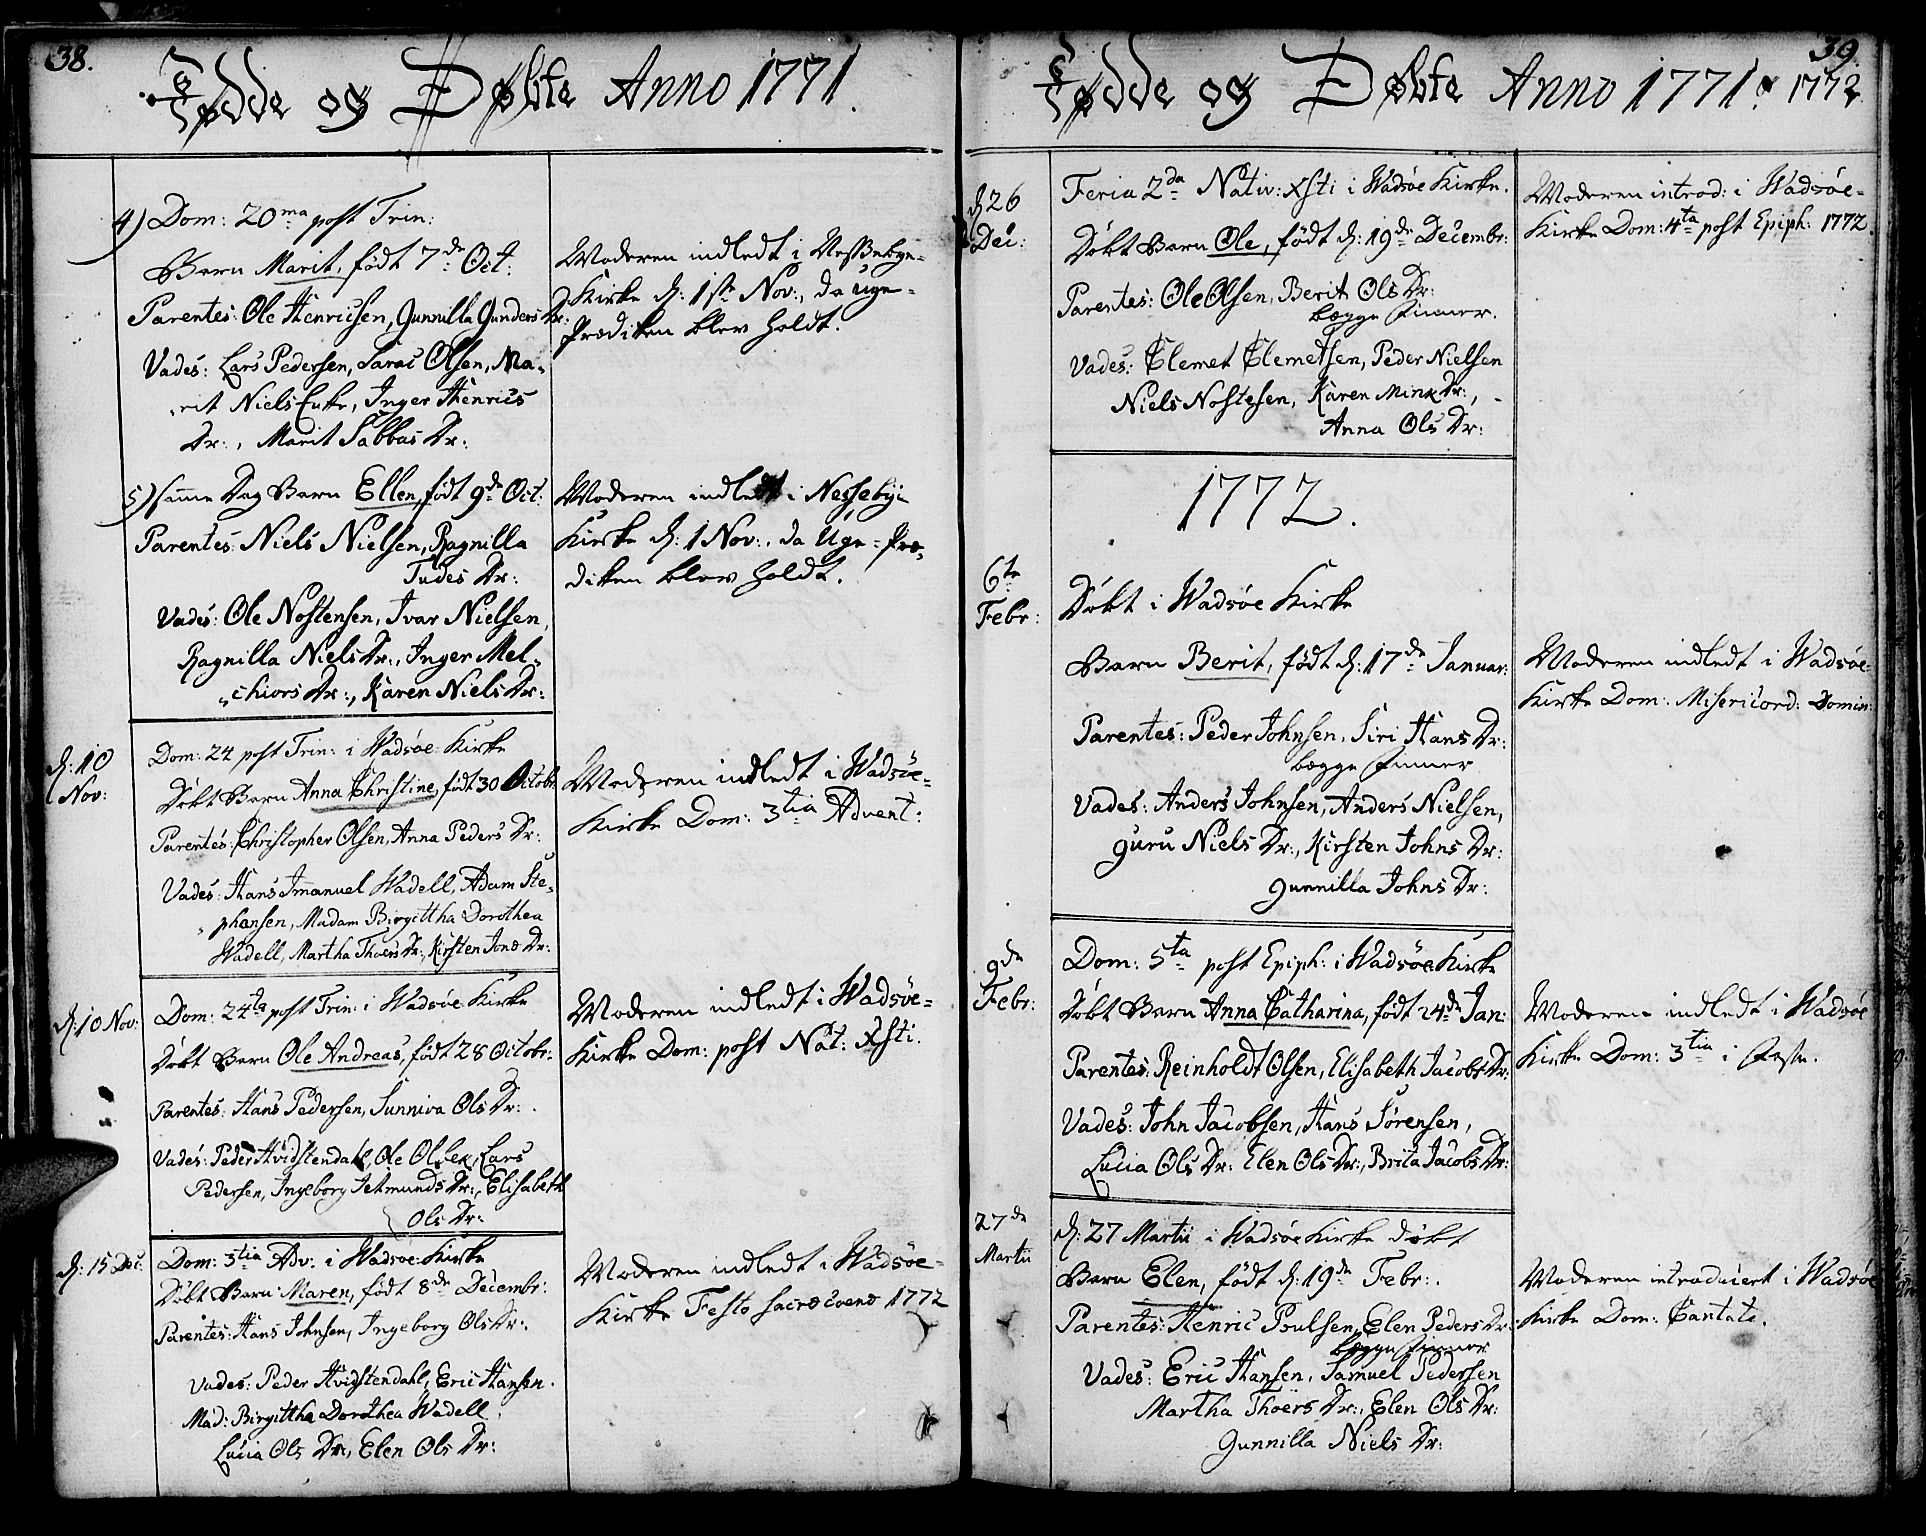 38.
Fødde og Døbte Anno 1771.
4) Dom: 20ma post Trin:
Barn Marit, født 7de Oct:
Parentes: Ole Henricsen, Gunnilla Gunders Dr:
Vades: Lars Pedersen, Sarac Olsen, Ma-
rit Niels Enke, Inger Henrics
Dr:, Marit Sabbas Dr:
Moderen indledt i Nessebye-
Kirke d: 1ste Nov:, da uge-
Prædiken blev holdt.
5) samme Dag Barn Ellen, født 9de Oct:
Parentes: Niels Nielsen, Ragnilla
Tudes Dr:
Vades: Ole Nostensen, Ivar Nielsen,
Ragnilla Niels Dr:, Inger Mel-
chiors Dr:, Karen Niels Dr:
Moderen indledt i Nessebye
Kirke d: 1 Nov:, da Uge-Præ-
diken blev holdt.
d: 10
Nov:
Dom: 24 post Trin: i Wadsøe Kirke
Døbt Barn Anna Christine, født 30 Octobr:
Parentes: Christopher Olsen, Anna Peders Dr:
Vades: Hans Imanuel Wadell, Adam Ste-
phansen, Madam Birgittha Dorothea
Wadell, Martha Thoers Dr:, Kirsten Jons Dr:
Moderen indledt i Wadsøe-
Kirke Dom: 3tia Advent:
d: 10 Nov:
Dom: 24ta post Trin: i Wadsøe Kirke
Døbt Barn Ole Andreas, født 28 Octobr:
Parentes: Hans Pedersen, Sunniva Ols Dr:
Vades: Peder Hvidstendahl, Ole Olsen, Lars
Pedersen, Ingeborg Jetmunds Dr:, Elisabeth
Ols Dr:
Moderen indledt i Wadsøe-
Kirke Dom: post Nat: Xsti.
d: 15 Dec:
Dom: 3tia Adv: i Wadsøe Kirke
Døbt Barn Maren, født 8de Decembr:
Parentes: Hans Johnsen, Ingeborg Ols Dr:
Vades: Peder Hvidstendahl, Eric Hansen.
Mad: Birgittha Dorothea Wadell,
Lucia Ols Dr:, Elen Ols Dr:
Moderen indledt i Wadsøe-
Kirke Festo 1772
39.
Fødde og Døbte Anno 1771 & 1772
d: 26
Dec:
Feria 2da Nativ: Xsti i Wadsøe Kirke.
Døbt Barn Ole, født d: 19de Decembr:
Parentes: Ole Olsen, Berit Ols Dr:
begge Finner.
Vades: Clemet Clemetsen, Peder Nielsen
Niels Nostesen, Karen Minx Dr:,
Anna Ols Dr:
Moderen introd: i Wadsøe-
Kirke Dom: 4ta post Epiph: 1772.
1772.
6te
Febr:
Døbt i Wadsøe Kirke
Barn Berit, født d: 17de Januar:
Parentes: Peder Johnsen, Siri Hans Dr:
begge Finner
Vades: Anders Johnsen, Anders Nielsen,
Guru Niels Dr:, Kirsten Johns Dr:
Gunnilla Johns Dr:
Moderen indledt i Wadsøe-
Kirke Dom: Misericord: Domin:
9de
Febr:
Dom: 5ta post Epiph: i Wadsøe Kirke
Døbt Barn Anna Catharina, født 24de Jan:
Parentes: Reinholdt Olsen, Elisabeth Jacobs Dr:
Vades: John Jacobsen, Hans Sørensen,
Lucia Ols Dr: Elen Ols Dr:, Brita Jacobs Dr:
Moderen indledt i Wadsøe
Kirke Dom: 3tia i Faste.
27de
Martii
d: 27 Martii i Wadsøe Kirke døbt
Barn Elen, født d: 19de Febr:.
Parentes: Henric Poulsen, Elen Peders Dr:
begge Finner
Vades: Eric Hansen, Samuel Pedersen
Martha Thoers Dr:, Elen Ols Dr:
Gunnilla Niels Dr:
Moderen introducert i Wadsøe
Kirke Dom: Cantate.